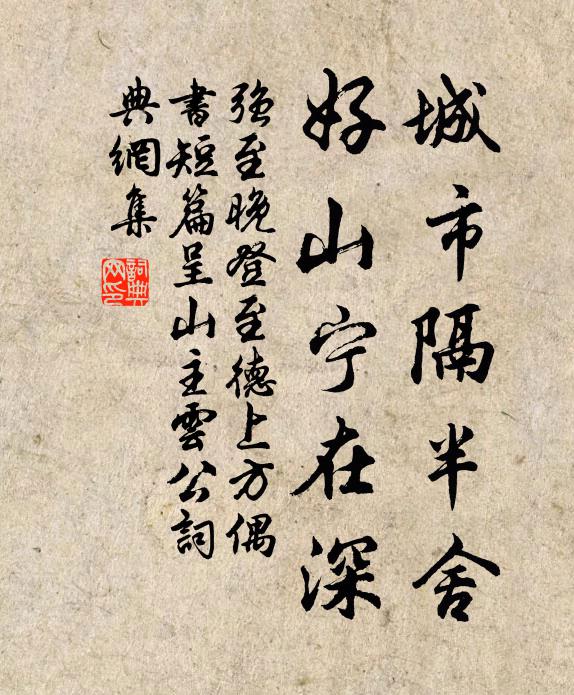 城市隔半舍
好山宁在深
强至晚登至德上方偶
書短篇呈山主雲公詞
典網集
詞典网印